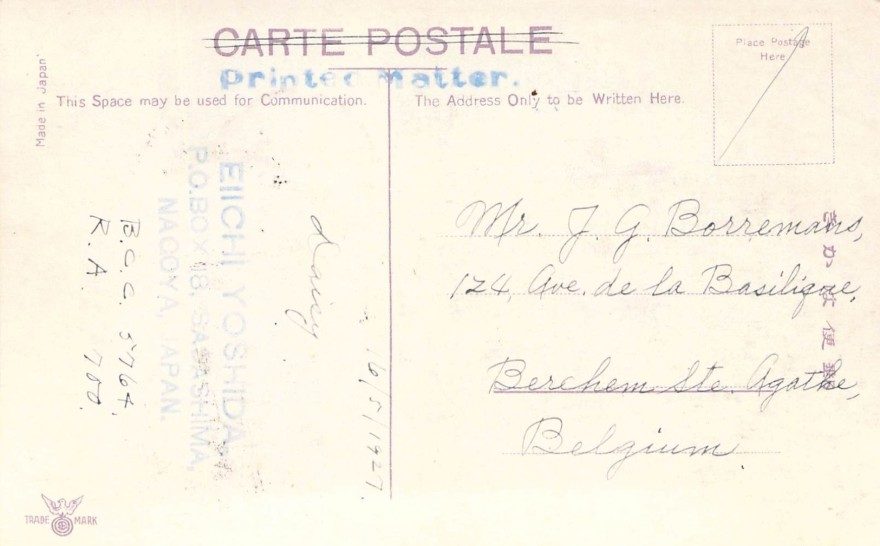 CARTE POSTALE
Printed Matter.
Place Postage
Here
Made in Japan
This Space may be used for Communication.
The Address Only to be Written Here.
EIICHI YOSHIDA
P.O.BOX 18, SASASHIMA,
NAGOYA, JAPAN.
B.C.C. 5764
R.A. 700.
Daisy
16/5/1927
Mr. J. G. Borremans,
124, Ave. de la Basilique,
Berchem Ste. Agathe,
Belgium
きかは便郵
TRADE MARK